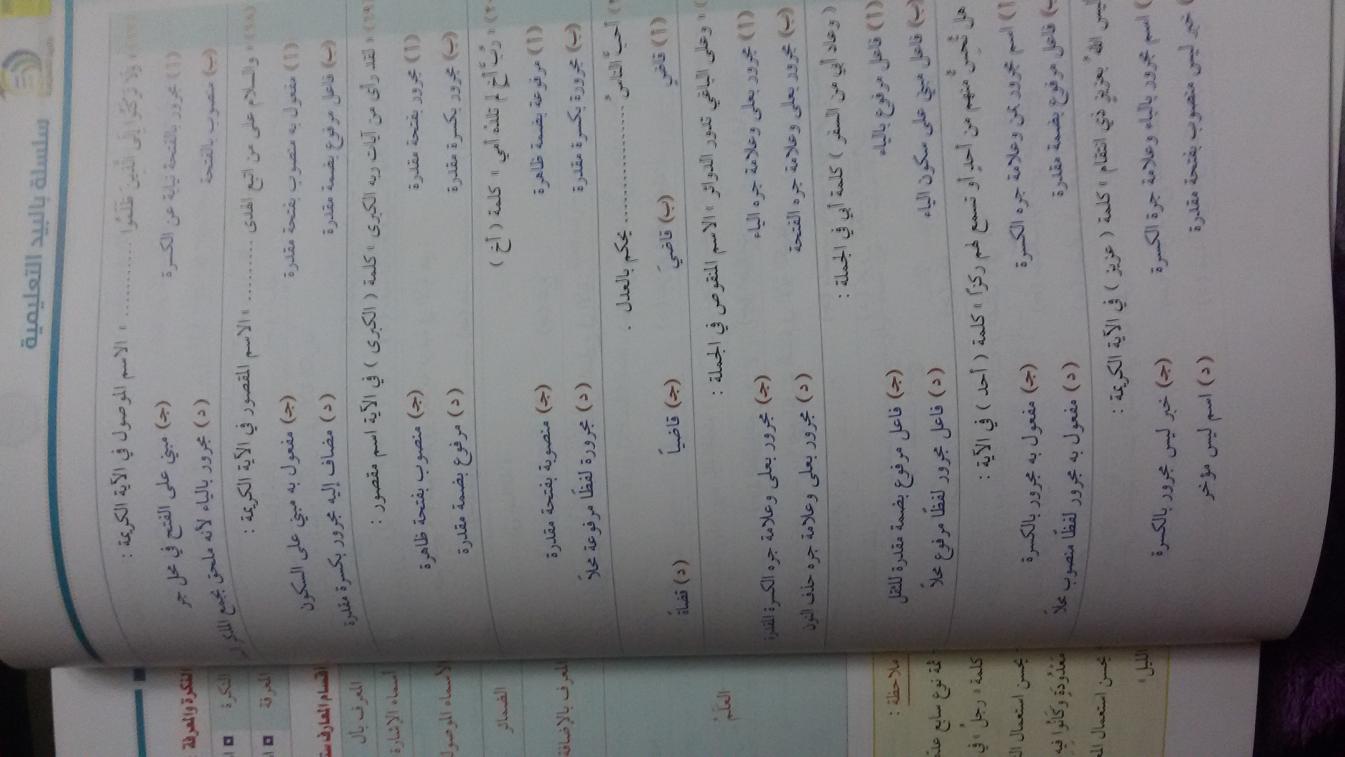 سلسلة بالبيد التعليمية
وَلَا تَرْكَنُوا إِلَى الَّذِينَ ظَلَمُوا ............ » الاسم الموصول في الآية الكريمة :
(أ) مجرور بالفتحة نيابة عن الكسرة (جـ) مبني على الفتح في محل جر
(ب) منصوب بالفتحة (د) مجرور بالياء لأنه ملحق بجمع المذكر
« والسلام على من اتبع الهدى .......... » الاسم المقصور في الآية الكريمة :
(أ) مفعول به منصوب بفتحة مقدرة (جـ) مفعول به مبني على السكون
(ب) فاعل مرفوع بضمة مقدرة (د) مضاف إليه مجرور بكسرة مقدرة
« لقد رأى من آيات ربه الكبرى » كلمة ( الكبرى ) في الآية اسم مقصور :
(أ) مجرور بفتحة مقدرة (جـ) منصوب بفتحة ظاهرة
(ب) مجرور بكسرة مقدرة (د) مرفوع بضمة مقدرة
« رُبَّ أخٍ لم تلده أمي » كلمة ( أخ )
(أ) مرفوعة بضمة ظاهرة (جـ) منصوبة بفتحة مقدرة
(ب) مجرورة بكسرة مقدرة (د) مجرورة لفظًا مرفوعة محلاً
أحبّ الناسُ .................. يحكم بالعدل .
(أ) قاضي (ب) قاضيَ (جـ) قاضياً (د) قضاة
« وعلى الباغي تدور الدوائر » الاسم المنقوص في الجملة :
(أ) مجرور بعلى وعلامة جره الياء (جـ) مجرور بعلى وعلامة جره الكسرة المقدرة
(ب) مجرور بعلى وعلامة جره الفتحة (د) مجرور بعلى وعلامة جره حذف النون
( وعاد أبي من السفر ) كلمة أبي في الجملة :
(أ) فاعل مرفوع بالياء (جـ) فاعل مرفوع بضمة مقدرة للثقل
(ب) فاعل مبني على سكون الياء (د) فاعل مجرور لفظًا مرفوع محلاً
هل تُحِسُّ مِنْهم من أحدٍ أو تسمع لهم ركزًا » كلمة ( أحد ) في الآية :
اسم مجرور بمن وعلامة جره الكسرة (جـ) مفعول به مجرور بالكسرة
فاعل مرفوع بضمة مقدرة (د) مفعول به مجرور لفظًا منصوب محلاً
ليس اللهُ بعزيزٍ ذي انتقام » كلمة ( عزيز ) في الآية الكريمة :
اسم مجرور بالباء وعلامة جره الكسرة (جـ) خبر ليس مجرور بالكسرة
خبر ليس منصوب بفتحة مقدرة (د) اسم ليس مؤخر
النكرة والمعرفة
النكرة
المعرفة
أقسام المعارف
المعرف بأل
أسماء الإشارة
الضمائر
المعرف بالإضافة
العلَمُ
ملاحظة :
ثمة نوع سابع
كلمة « رجلُ » في
يحسن استعمال
مَعْدُودَةٍ وَكَانُوا فِيهِ
يحسن استعمال
الليل؛